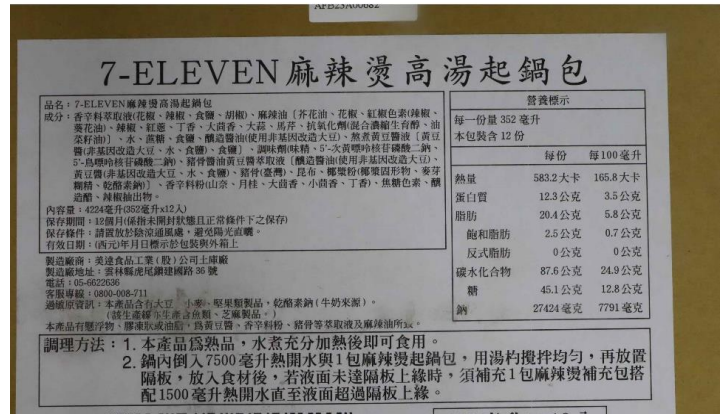 AFB23A00682
7-ELEVEN麻辣燙高湯起鍋包
品名：7-ELEVEN麻辣燙高湯起鍋包
成分：香辛料萃取液(花椒、辣椒、食鹽、胡椒)、麻辣油〔芥花油、花椒、紅椒色素(辣椒、
葵花油)、辣椒、紅蔥、丁香、大茴香、大蒜、馬芹、抗氧化劑(混合濃縮生育醇、油
菜籽油)〕、水、蔗糖、食鹽、釀造醬油(使用非基因改造大豆)、熬煮黃豆醬液〔黃豆
醬(非基因改造大豆、水、食鹽)、食鹽〕、調味劑(味精、5'-次黃嘌呤核苷磷酸二鈉、
5'-鳥嘌呤核苷磷酸二鈉)、豬骨醬油黃豆醬萃取液〔釀造醬油(使用非基因改造大豆)、
黃豆醬(非基因改造大豆、水、食鹽)、豬骨(臺灣)、昆布、椰漿粉(椰漿固形物、麥芽
糊精、乾酪素鈉)〕、香辛料粉(山奈、月桂、大茴香、小茴香、丁香)、焦糖色素、釀
造醋、辣椒抽出物。
內容量：4224毫升(352毫升x12入)
保存期間：12個月(係指未開封狀態且正常條件下之保存)
保存條件：請置放於陰涼通風處，避免陽光直曬。
有效日期：(西元)年月日標示於包裝與外箱上
製造廠商：美達食品工業(股)公司土庫廠
製造廠地址：雲林縣虎尾鎮建國路36號
電話：05-6622636
客服專線：0800-008-711
過敏原資訊：本產品含有大豆、小麥、堅果類製品、乾酪素鈉(牛奶來源)。
(該生產線亦生產含魚類、芝麻製品。)
本產品有懸浮物、膠凍狀或油脂，為黃豆醬、香辛料粉、豬骨等萃取液及麻辣油所致。
營養標示
每一份量 352 毫升
本包裝含 12 份
每份 每100毫升
熱量 583.2大卡 165.8大卡
蛋白質 12.3公克 3.5公克
脂肪 20.4公克 5.8公克
飽和脂肪 2.5公克 0.7公克
反式脂肪 0公克 0公克
碳水化合物 87.6公克 24.9公克
糖 45.1公克 12.8公克
鈉 27424毫克 7791毫克
調理方法：1. 本產品為熟品，水煮充分加熱後即可食用。
2. 鍋內倒入7500毫升熱開水與1包麻辣燙起鍋包，用湯杓攪拌均勻，再放置
隔板，放入食材後，若液面未達隔板上緣時，須補充1包麻辣燙補充包搭
配1500毫升熱開水直至液面超過隔板上緣。